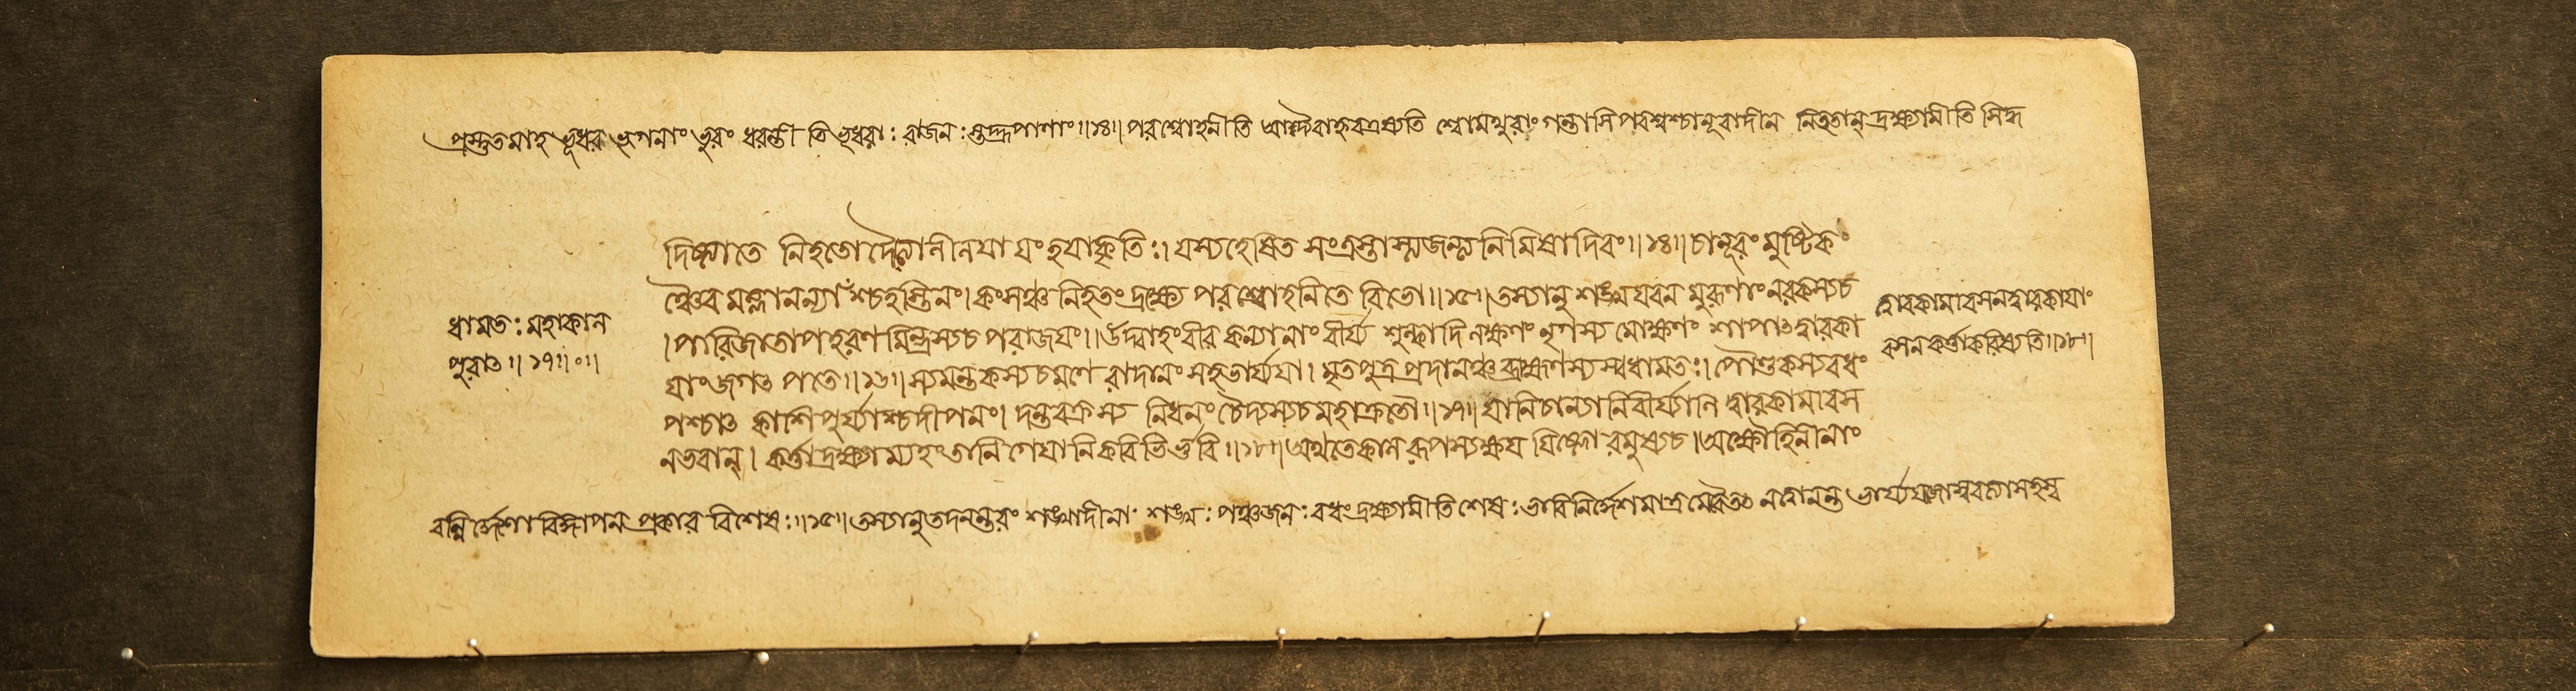 প্রস্তুতমাহ ভূধর ভূগনাং ভুরং ধরন্তী তি ভূধরা: রাজন: স্তদ্রূপাণাং॥১৪॥ পরশ্বোহনীতি শ্বোমথুরাং গন্তাসি পরশ্বশ্চানূরাদীন নিহতান্ দ্রক্ষ্যামীতি সিদ্ধ
দিষ্ট্যাতে নিহতো দৈত্যোনীলযা যং হযাকৃতি:। যস্যহেষিত সংত্রস্তাস্ত্যজন্ত্যনিমিষাদিবং॥১৪॥ চানূরং মুষ্টিকং
ঞ্চৈব মল্লানন্যাঁশ্চহস্তিনং। কংসঞ্চ নিহতং দ্রক্ষ্যে পরশ্বোহনিতে বিভো॥১৫॥ তস্যানু শঙ্খযবন মুরূণাং নরকস্যচ
।পারিজাতাপহরণ মিন্দ্রস্যচ পরাজযং।। উদ্বাহং বীর কন্যানাং বীর্য্য শুল্কাদি লক্ষণং নৃগস্য মোক্ষণং শাপাৎ দ্বারকা
যাং জগৎ পতে॥১৬॥ স্যমন্তকস্যচমণে রাদানং সহভার্য্যযা। মৃতপুত্রপ্রদানঞ্চ ব্রাহ্মণস্যস্বধামত:। পৌণ্ড্রকস্যবধং
পশ্চাৎ কাশিপুর্য্যাশ্চদীপনং। দন্তবক্রস্য নিধনং চৈদ্যস্যচমহাক্রতৌ॥১৭॥ যানিচান্যানিবীর্য্যানি দ্বারকামাবস
নভবান্। কর্ত্তাদ্রক্ষ্যাম্যহংতানি গেযানিকবিভির্ভুবি॥১৮॥ অথতেকালরূপস্যক্ষপযিষ্ণোরমুষ্যচ। অক্ষৌহিনীনাং
ধামত: মহাকাল
পুরাৎ॥১৭॥০॥
দ্বারকামাবসনদ্বারকাযাং
বসনকর্ত্তাকরিষ্যতি॥১৮॥
বন্নির্দ্দেশো বিজ্ঞাপন প্রকার বিশেষ:॥১৫॥ তস্যানুতদনন্তরং শঙ্খাদীনাং শঙ্খ: পঞ্চজন: বধংদ্রক্ষ্যামীতি শেষ: ভাবিনির্দ্দেশমাত্রমেবৈতৎ